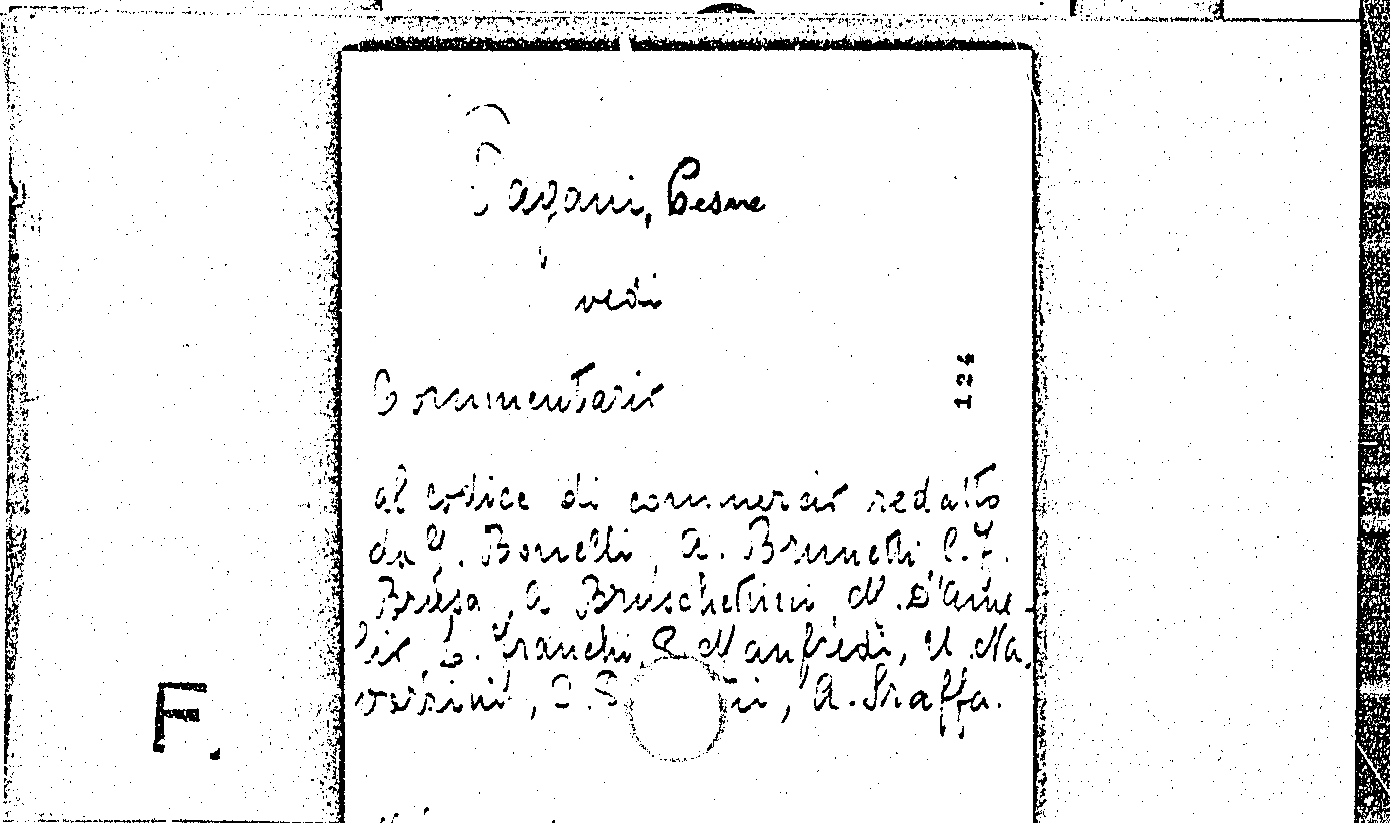 Pagani, Cesare
vedi
Commentario
124
al codice di commercio redatto
da G. Bonelli, A. Brunetti, C. F.
Brusa, A. Bruschettini, M. D'Ame-
lio, L. Franchi, P. Manfredi, U. Na-
varrini, A. Sraffa.
F.